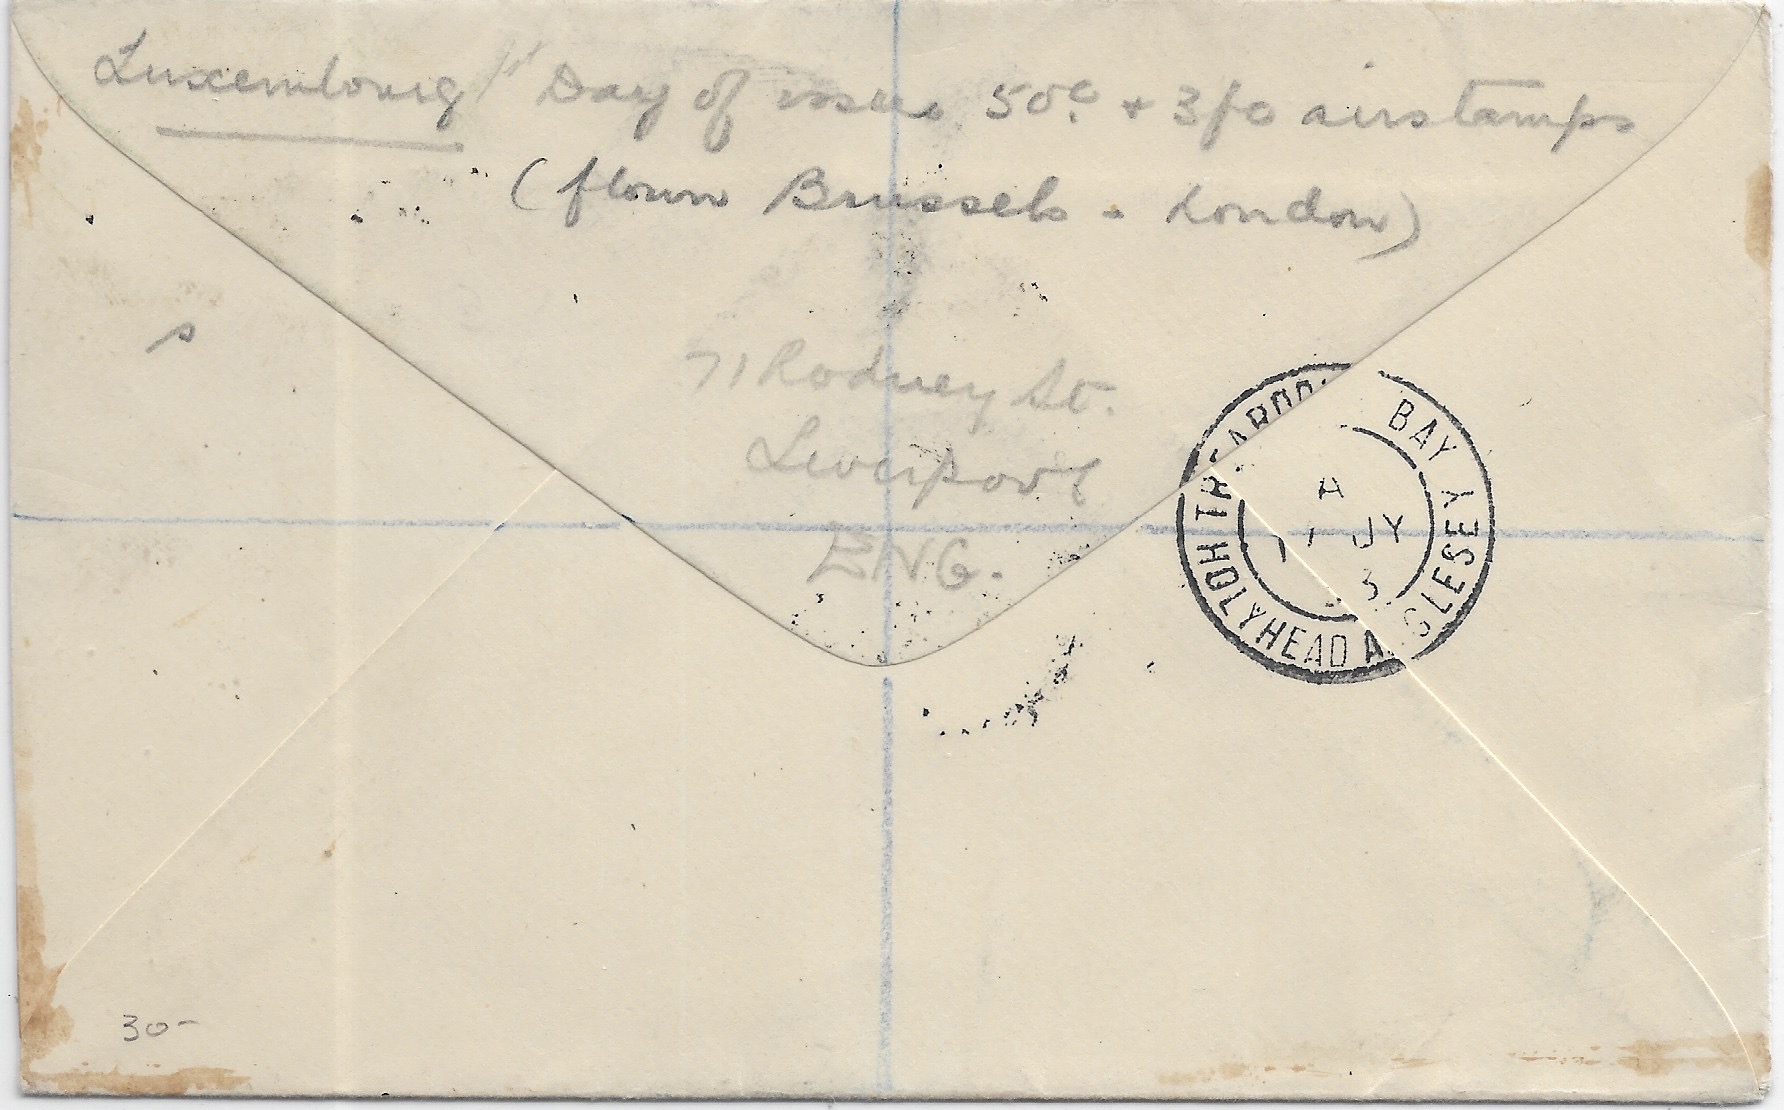 Luxembourg 1st Day of issue 50c. + 3f0 airstamps
(flown Brussels - London)
s
71 Rodney St.
Liverpool
ENG.
BAY
HOLYHEAD A GLESEY
A
JY
3
30-